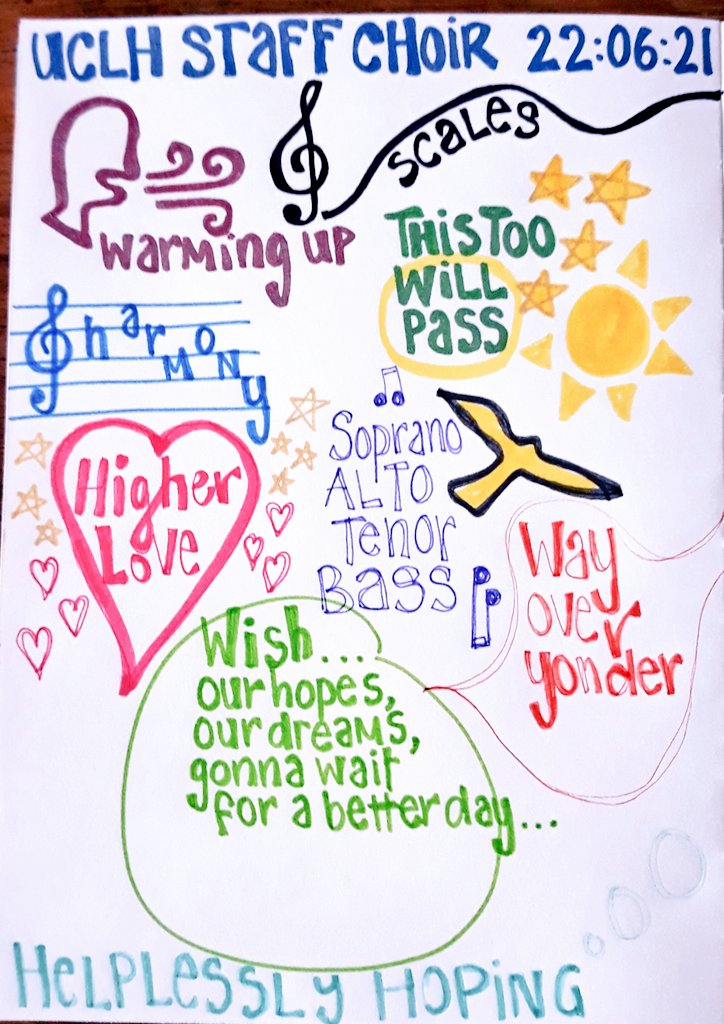 UCLH STAFF CHOIR 22:06:21
SCALES
WARMING UP
THIS TOO
WILL
PASS
harMONY
Higher
LOVE
Soprano
ALTO
Tenor
BASS
Way
over
yonder
Wish...
our hopes,
our dreams,
gonna wait
for a better day...
HELPLESSLY HOPING